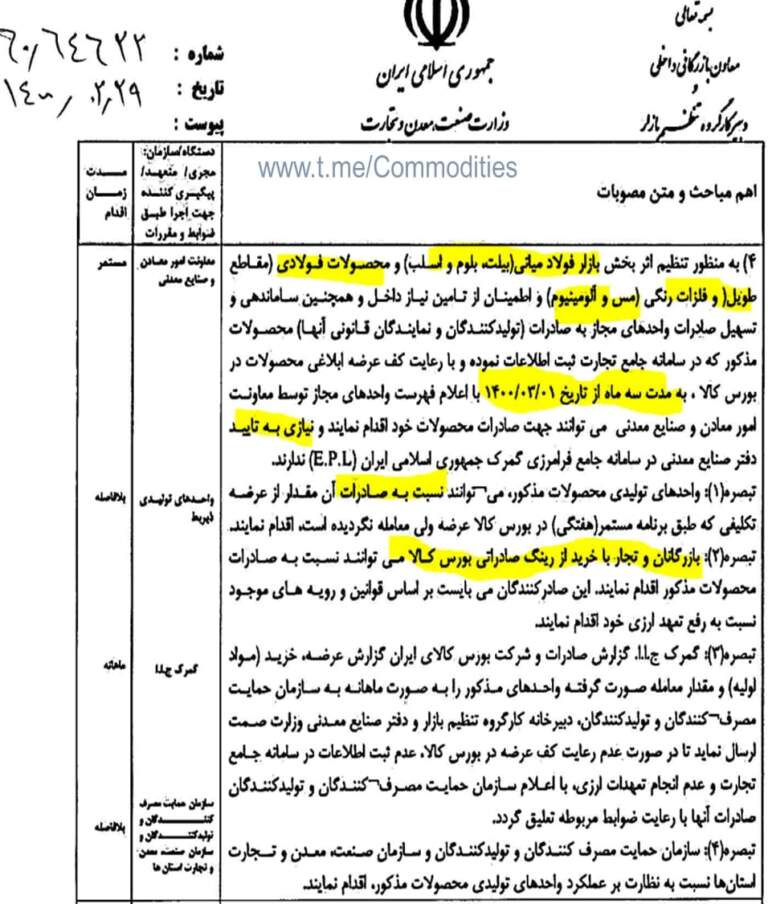 بسمه تعالی
معاون بازرگانی داخلی
و
دبیر کارگروه تنظیم بازار
جمهوری اسلامی ایران
وزارت صنعت، معدن و تجارت
شماره : ۶۰/۶۴۶۲۲
تاریخ : ۱۴۰۰/۰۲/۲۹
پیوست :
www.t.me/Commodities
اهم مباحث و متن مصوبات
دستگاه/سازمان:
مجری/ متعهد/
پیگیری کننده
جهت اجرا طبق
ضوابط و مقررات
مــدت
زمـــان
اقدام
۴) به منظور تنظیم اثر بخش بازار فولاد میانی(بیلت، بلوم و اسلب) و محصولات فـولادی (مقـاطع
طویل( و فلزات رنگی (مس و آلومینیوم) و اطمینان از تامین نیـاز داخـل و همچنـین سـاماندهی و
تسهیل صادرات واحدهای مجاز به صادرات (تولیدکنندگان و نمایندگان قـانونی آنهـا) محصـولات
مذکور که در سامانه جامع تجارت ثبت اطلاعات نموده و با رعایت کف عرضه ابلاغی محصولات در
بورس کالا ، به مدت سه ماه از تاریخ ۱۴۰۰/۰۳/۰۱ با اعلام فهرست واحدهای مجاز توسط معاونت
امور معادن و صنایع معدنی می توانند جهت صادرات محصولات خود اقدام نمایند و نیازی بـه تاییـد
دفتر صنایع معدنی در سامانه جامع فرامرزی گمرک جمهوری اسلامی ایران (E.P.L) ندارند.
معاونت امور معـادن
و صنایع معدنی
مستمر
تبصره(۱): واحدهای تولیدی محصولات مذکور، می¬توانند نسبت به صـادرات آن مقـدار از عرضـه
تکلیفی که طبق برنامه مستمر(هفتگی) در بورس کالا عرضه ولی معامله نگردیده است، اقدام نمایند.
واحدهای تولیدی
ذیربط
بلافاصله
تبصره(۲): بازرگانان و تجار با خرید از رینگ صادراتی بورس کـالا مـی تواننـد نسـبت بـه صـادرات
محصولات مذکور اقدام نمایند. این صادرکنندگان می بایست بر اساس قوانین و رویـه هـای موجـود
نسبت به رفع تعهد ارزی خود اقدام نمایند.
تبصره(۳): گمرک ج.ا.ا. گزارش صادرات و شرکت بورس کالای ایران گزارش عرضه، خریـد (مـواد
اولیه) و مقدار معامله صورت گرفتـه واحـدهای مـذکور را بـه صـورت ماهانـه بـه سـازمان حمایـت
مصرف¬کنندگان و تولیدکنندگان، دبیرخانه کارگروه تنظیم بازار و دفتر صنایع معدنی وزارت صـمت
ارسال نماید تا در صورت عدم رعایت کف عرضه در بورس کالا، عدم ثبت اطلاعات در سـامانه جـامع
تجارت و عدم انجام تعهدات ارزی، با اعـلام سـازمان حمایـت مصـرف¬کننـدگان و تولیدکننـدگان
صادرات آنها با رعایت ضوابط مربوطه تعلیق گردد.
گمرک ج.ا.ا
ماهانه
تبصره(۴): سازمان حمایت مصرف کنندگان و تولیدکنندگان و سازمان صـنعت، معـدن و تجـارت
استان‌ها نسبت به نظارت بر عملکرد واحدهای تولیدی محصولات مذکور، اقدام نمایند.
سازمان حمایت مصرف
کننــــدگان و
تولیدکننــدگان و
سازمان صنعت، معدن
و تجارت استان ها
بلافاصله